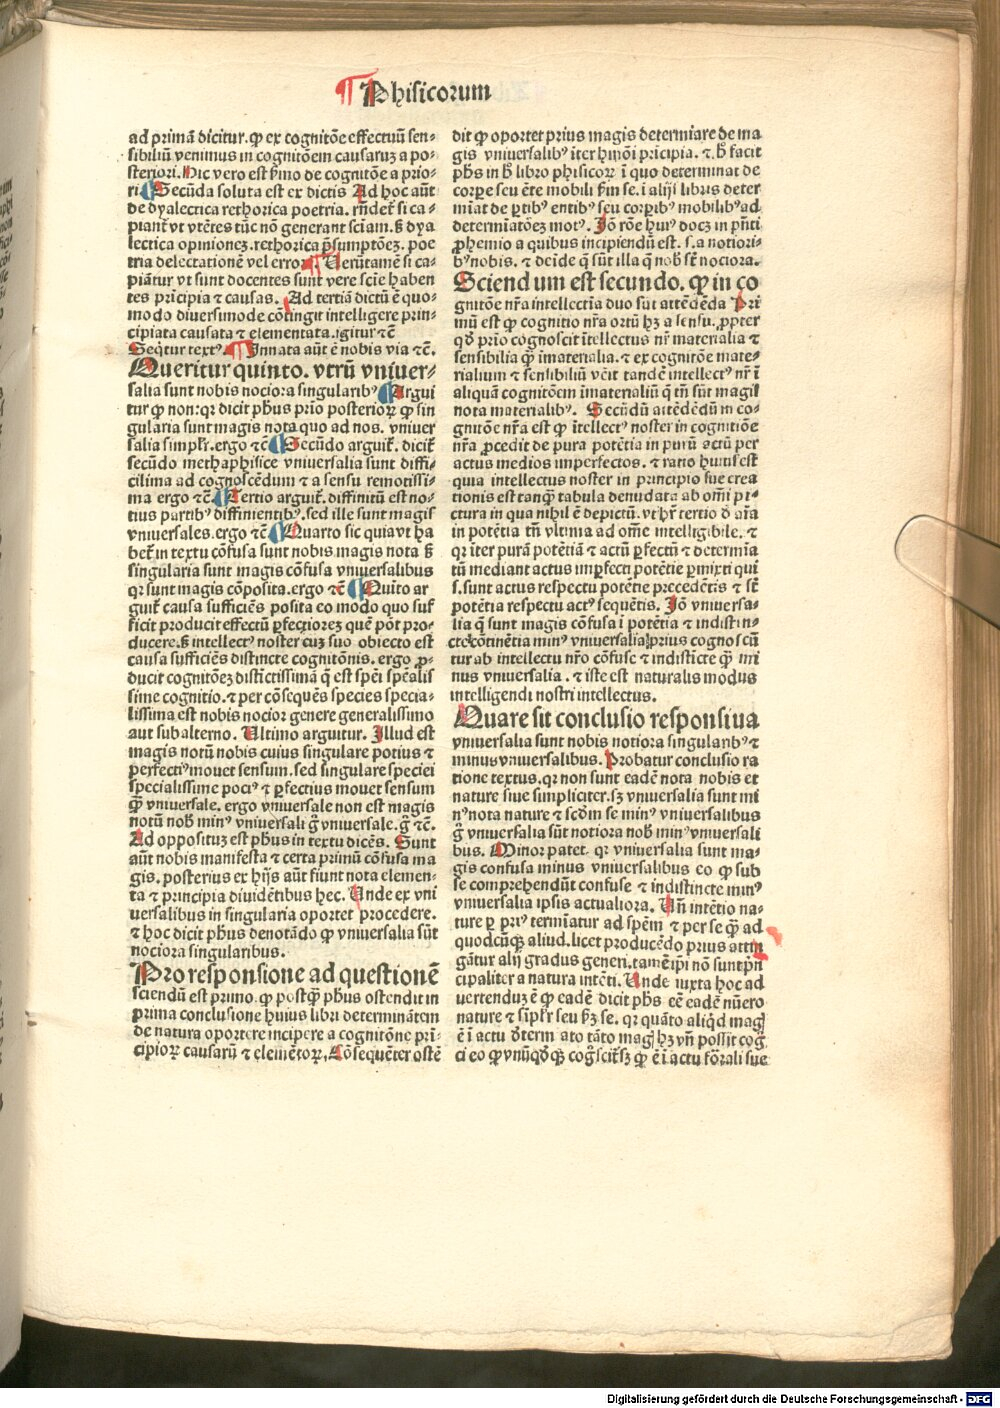 Phisicorum
ad primā dicitur. ꝙ ex cognitōe effectuū sen⸗
sibiliū venimus in cognitōem causaruꝫ a po⸗
steriori. Hic vero est ẜmo de cognitōe a prio⸗
ri. Secūda soluta est ex dictis Ad hoc aūt
de dyalectica rethorica poetria. rn̄deť si ca⸗
piant̄ vt vtētes tūc nō generant sciam. ẜ dya
lectica opinioneꝫ. rethorica p̄sumptōeꝫ. poe
tria delectationē vel errorē. Verūtamē si ca⸗
piātur vt sunt docentes sunt vere sciē haben
tes pricipia ⁊ causas. Ad tertiā dictū ē quo⸗
modo diuersimode cōtingit intelligere prin⸗
cipiata causata ⁊ elementata. igitur ⁊c̄
Seq̄tur textꝰ. Innata aūt ē nobis via ⁊c̄.
Queritur quinto. vtrū vniuer⸗
salia sunt nobis nociora singularibꝰ Argui
tur ꝙ non: qꝛ dicit pħus prio posterioꝝ ꝙ sin
gularia sunt magis nota quo ad nos. vniuer
salia simpłr. ergo ⁊c̄ Secūdo arguiť. diciť
secūdo methaphisice vniuersalia sunt diffi⸗
cilima ad cognoscēdum ⁊ a sensu remotissi⸗
ma ergo ⁊c̄. Tertio arguiť. diffinitū est no⸗
tius partibꝰ diffinientibꝰ. sed ille sunt magis
vniuersales. ergo ⁊c̄ Quarto sic quia vt ha
beť in textu cōfusa sunt nobis magis nota ẜ
singularia sunt magis cōfusa vniuersalibus
qꝛ sunt magis cōposita. ergo ⁊c̄ Quīto ar
guiť causa sufficiēs posita eo modo quo suf
ficit producit effectū ꝑfectioreꝫ quē pōt pro⸗
ducere. ẜ intellectꝰ noster cuꝫ suo obiecto est
causa sufficiēs distincte cognitōnis. ergo ꝓ⸗
ducit cognitōeꝫ distīctissimā q̄ est spēi spēalis
sime cognitio. ⁊ per cōsequēs species specia⸗
lissima est nobis nocior genere generalissimo
aut subalterno. Ultimo arguitur. Illud est
magis notū nobis cuius singulare potius ⁊
perfectiꝰ mouet sensum. sed singulare speciei
specialissime pociꝰ ⁊ ꝑfectius mouet sensum
q̄ꝫ vniuersale. ergo vniuersale non est magis
notū nob̄ minꝰ vniuersali g̊ vniuersale. g̊ ⁊c̄.
Ad opposituꝫ est pħus in textu dicēs. Sunt
aūt nobis manifesta ⁊ certa primū cōfusa ma
gis. posterius ex hijs aūt fiunt nota elemen⸗
ta ⁊ principia diuidētibus hec. Unde ex vni
uersalibus in singularia oportet procedere.
⁊ hoc dicit pħus denotādo ꝙ vniuersalia sūt
nociora singularibus.
Pro responsione ad questionē
sciendū est primo. ꝙ postq̄ꝫ pħus ostendit in
prima conclusione huius libri determinātem
de natura oportere incipere a cognitōne pri⸗
cipioꝝ causarū ⁊ elemētoꝝ, Cōsequēter ostē
dit ꝙ oportet prius magis determīare de ma
gis vniuersalibꝰ īter hmōi pricipia. ⁊. b̄ facit
pħs in b̄ libro phisicoꝝ ī quo determinat de
corpe seu ēte mobili ẜm se. ī alijs libris deter
mīat de ꝑtibꝰ entibꝰ seu corpībꝰ mobilibꝰ ad
determiatōeꝫ motꝰ. Jō rōe huiꝰ docꝫ in pn̄ti
ꝓhemio a quibus incipiendū est. s. a notiori⸗
bꝰ nobis. ⁊ deīde q̄ sūt illa q̄ nob̄ sēt nociora.
Sciendum est secundo. ꝙ in co
gnitōne nr̄a intellectīa duo sūt attēdēda Pri
mū est ꝙ cognitio nr̄a ortū hꝫ a sensu. ꝓpter
qd̄ prio cognoscit ītellectus nr̄ materialia ⁊
sensibilia q̄ꝫ īmaterialia. ⁊ ex cognitōe mate⸗
rialium ⁊ sensibiliū vēit tandē intellectꝰ nr̄ ī
aliquā cognitōem īmaterialiū q̄ tn̄ sūt magis
nota materialibꝰ. Secūdū attēdēdū in co⸗
gnitōe nr̄a est ꝙ ītellectꝰ noster in cognitiōe
nr̄a ꝓcedit de pura potētia in purū actū per
actus medios imperfectos. ⁊ ratio huius est
quia intellectus noster in principio sue crea
tionis est tanq̄ꝫ tabula denudata ab om̄i pi⸗
ctura in qua nihil ē depictū. vt hr̄ tertio d̄ aīa
in potētia tn̄ vltima ad om̄e intelligibile. ⁊
qꝛ īter purā potētiā ⁊ actū ꝑfectū ⁊ determīa
tū mediant actus imꝑfecti potētie ꝑmixti qui
s. sunt actus respectu potētie precedētis ⁊ sēt
potētia respectu actꝰ sequētis. Jō vniuersa⸗
lia q̄ sunt magis cōfusa ī potētia ⁊ indistin⸗
cte cōtinētia minꝰ vniuersalia prius cognoscū
tur ab intellectu nr̄o cōfuse ⁊ indisticte q̄ꝫ mi
nus vniuersalia. ⁊ iste est naturalis modus
intelligendi nostri intellectus.
Quare sit conclusio responsiua
vniuersalia sunt nobis notiora singularibꝰ ⁊
minus vniuersalibus. Probatur conclusio ra
tione textus. qꝛ non sunt eadē nota nobis et
nature siue simpliciter. sꝫ vniuersalia sunt mi
nꝰ nota nature ⁊ scd̄m se minꝰ vniuersalibus
g̊ vniuersalia sūt notiora nob̄ minꝰ vniuersali
bus. Minor patet. qꝛ vniuersalia sunt ma⸗
gis confusa minus vniuersalibus eo ꝙ sub
se comprehendūt confuse ⁊ indistincte minꝰ
vniuersalia ipsis actualiora. Un̄ intētio na⸗
ture ꝑ priꝰ termīatur ad spēm ⁊ per se q̄ꝫ ad
quodcūqꝫ aliud. licet producēdo prius attin
gātur alij gradus geneři. tamē ipi nō sunt pn̄
cipaliter a natura intēti. Unde iuxta hoc ad
uertenduꝫ ē ꝙ eadē dicit pħs eē eadē nūero
nature ⁊ simpłr seu ẜꝫ se. qꝛ quāto aliqd magꝭ
ē ī actu d̄term ato tāto magꝭ hꝫ vn̄ possit cog̊
ci eo ꝙ vnūqd̄qꝫ cog̊sciť sꝫ ꝙ ē ī actu fōrali siue
Digitalisierung gefördert durch die Deutsche Forschungsgemeinschaft - DFG